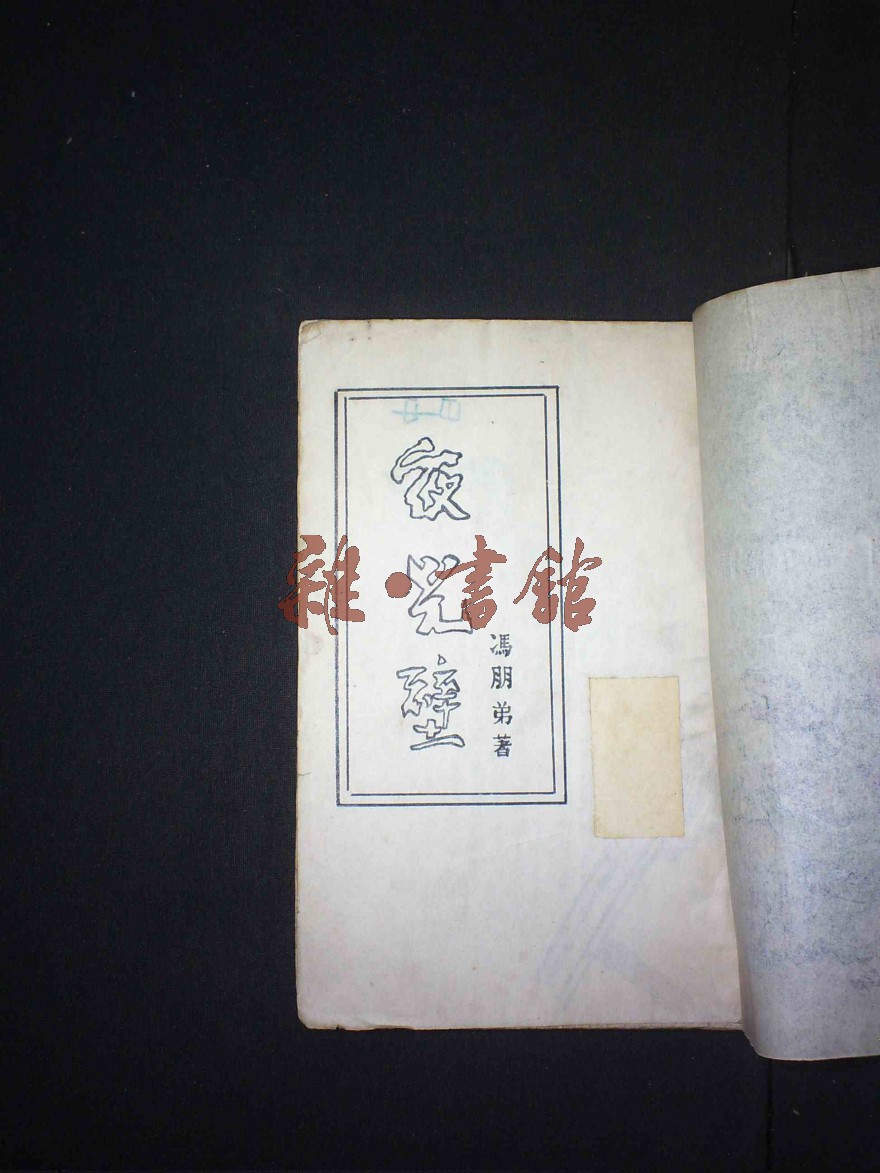 夜光壁
馮朋弟著
雜·書館